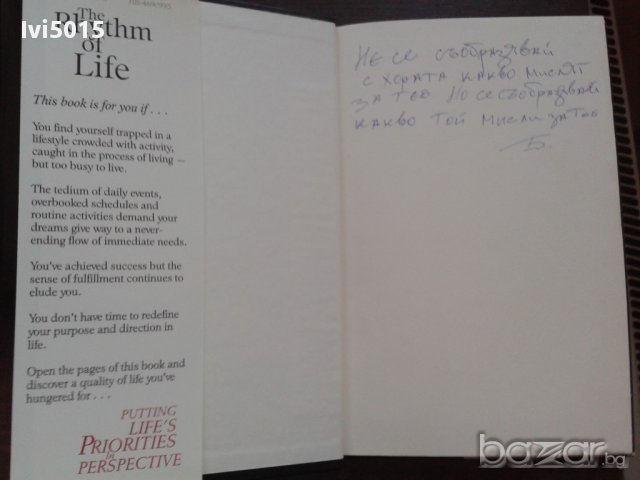 lvi5015
The
Rhythm
of
Life
This book is for you if . . .
You find yourself trapped in a
lifestyle crowded with activity,
caught in the process of living —
but too busy to live.
The tedium of daily events,
overbooked schedules and
routine activities demand your
dreams give way to a never-
ending flow of immediate needs.
You've achieved success but the
sense of fulfillment continues to
elude you.
You don't have time to redefine
your purpose and direction in
life.
Open the pages of this book and
discover a quality of life you've
hungered for . . .
PUTTING
LIFE'S
PRIORITIES
in
PERSPECTIVE
Не се съобразявай
с хората какво мислят
за теб Но се съобразявай
какво той мисли за теб
Б.
bazar.bg